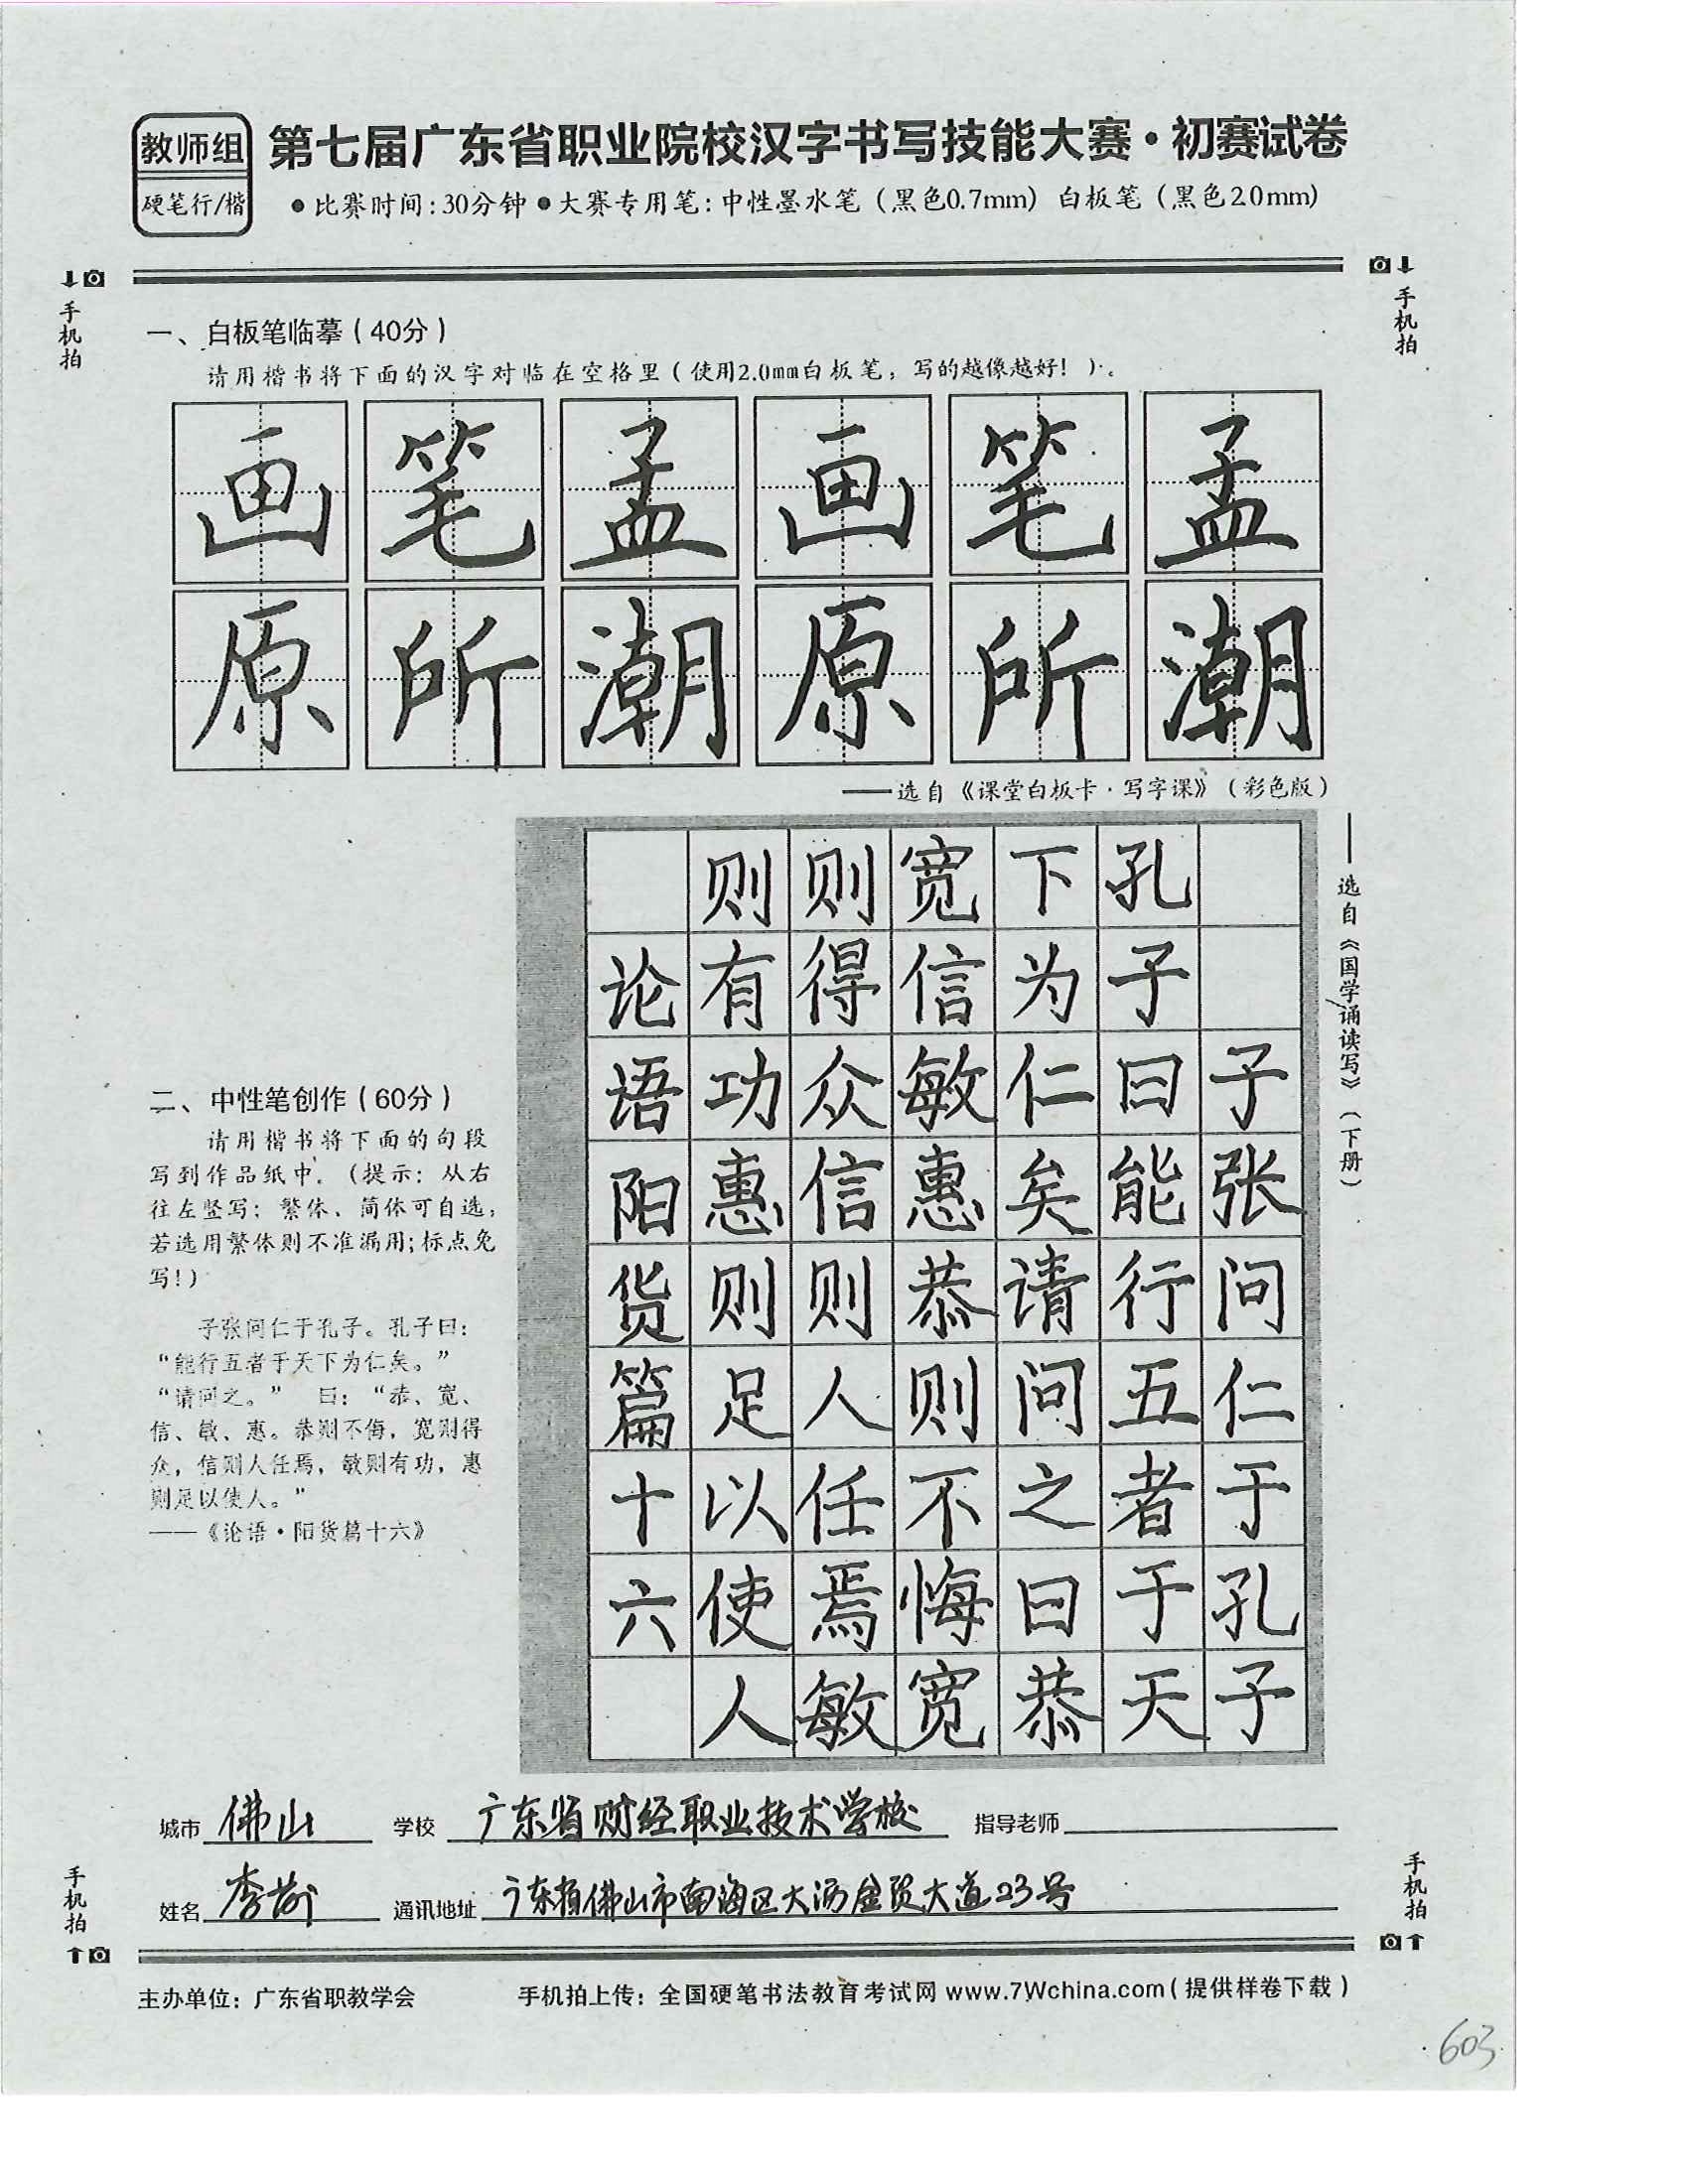 教师组
硬笔行/楷
第七届广东省职业院校汉字书写技能大赛·初赛试卷
●比赛时间:30分钟●大赛专用笔:中性墨水笔(黑色0.7mm) 白板笔(黑色2.0mm)
手机拍
手机拍
一、白板笔临摹(40分)
请用楷书将下面的汉字对临在空格里(使用2.0mm白板笔,写的越像越好!)。
画笔孟画笔孟
原所潮原所潮
——选自《课堂白板卡·写字课》(彩色版)
——选自《国学诵读写》(下册)
二、中性笔创作(60分)
请用楷书将下面的句段
写到作品纸中。(提示:从右
往左竖写;繁体、简体可自选,
若选用繁体则不准漏用;标点免
写!)
子张问仁于孔子。孔子曰:
“能行五者于天下为仁矣。”
“请问之。” 曰:“恭、宽、
信、敏、惠。恭则不侮,宽则得
众,信则人任焉,敏则有功,惠
则足以使人。”
——《论语·阳货篇十六》
子张问仁于孔子
孔子曰能行五者于天
下为仁矣请问之曰恭
宽信敏惠恭则不悔宽
则得众信则人任焉敏
则有功惠则足以使人
论语阳货篇十六
城市 佛山 学校 广东省财经职业技术学校 指导老师
姓名 李 通讯地址 广东省佛山市南海区大沥金贸大道23号
手机拍
手机拍
主办单位:广东省职教学会 手机拍上传:全国硬笔书法教育考试网 www.7Wchina.com(提供样卷下载)
603